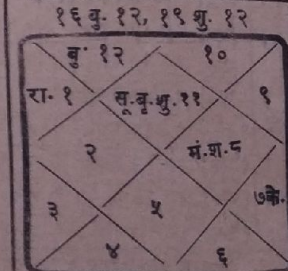 १६ बु. १२, १९ शु. १२
बु. १२ १०
रा. १ सू.बृ.शु.११ ९
२ मं.श.८
३ ५ ७के.
४ ६